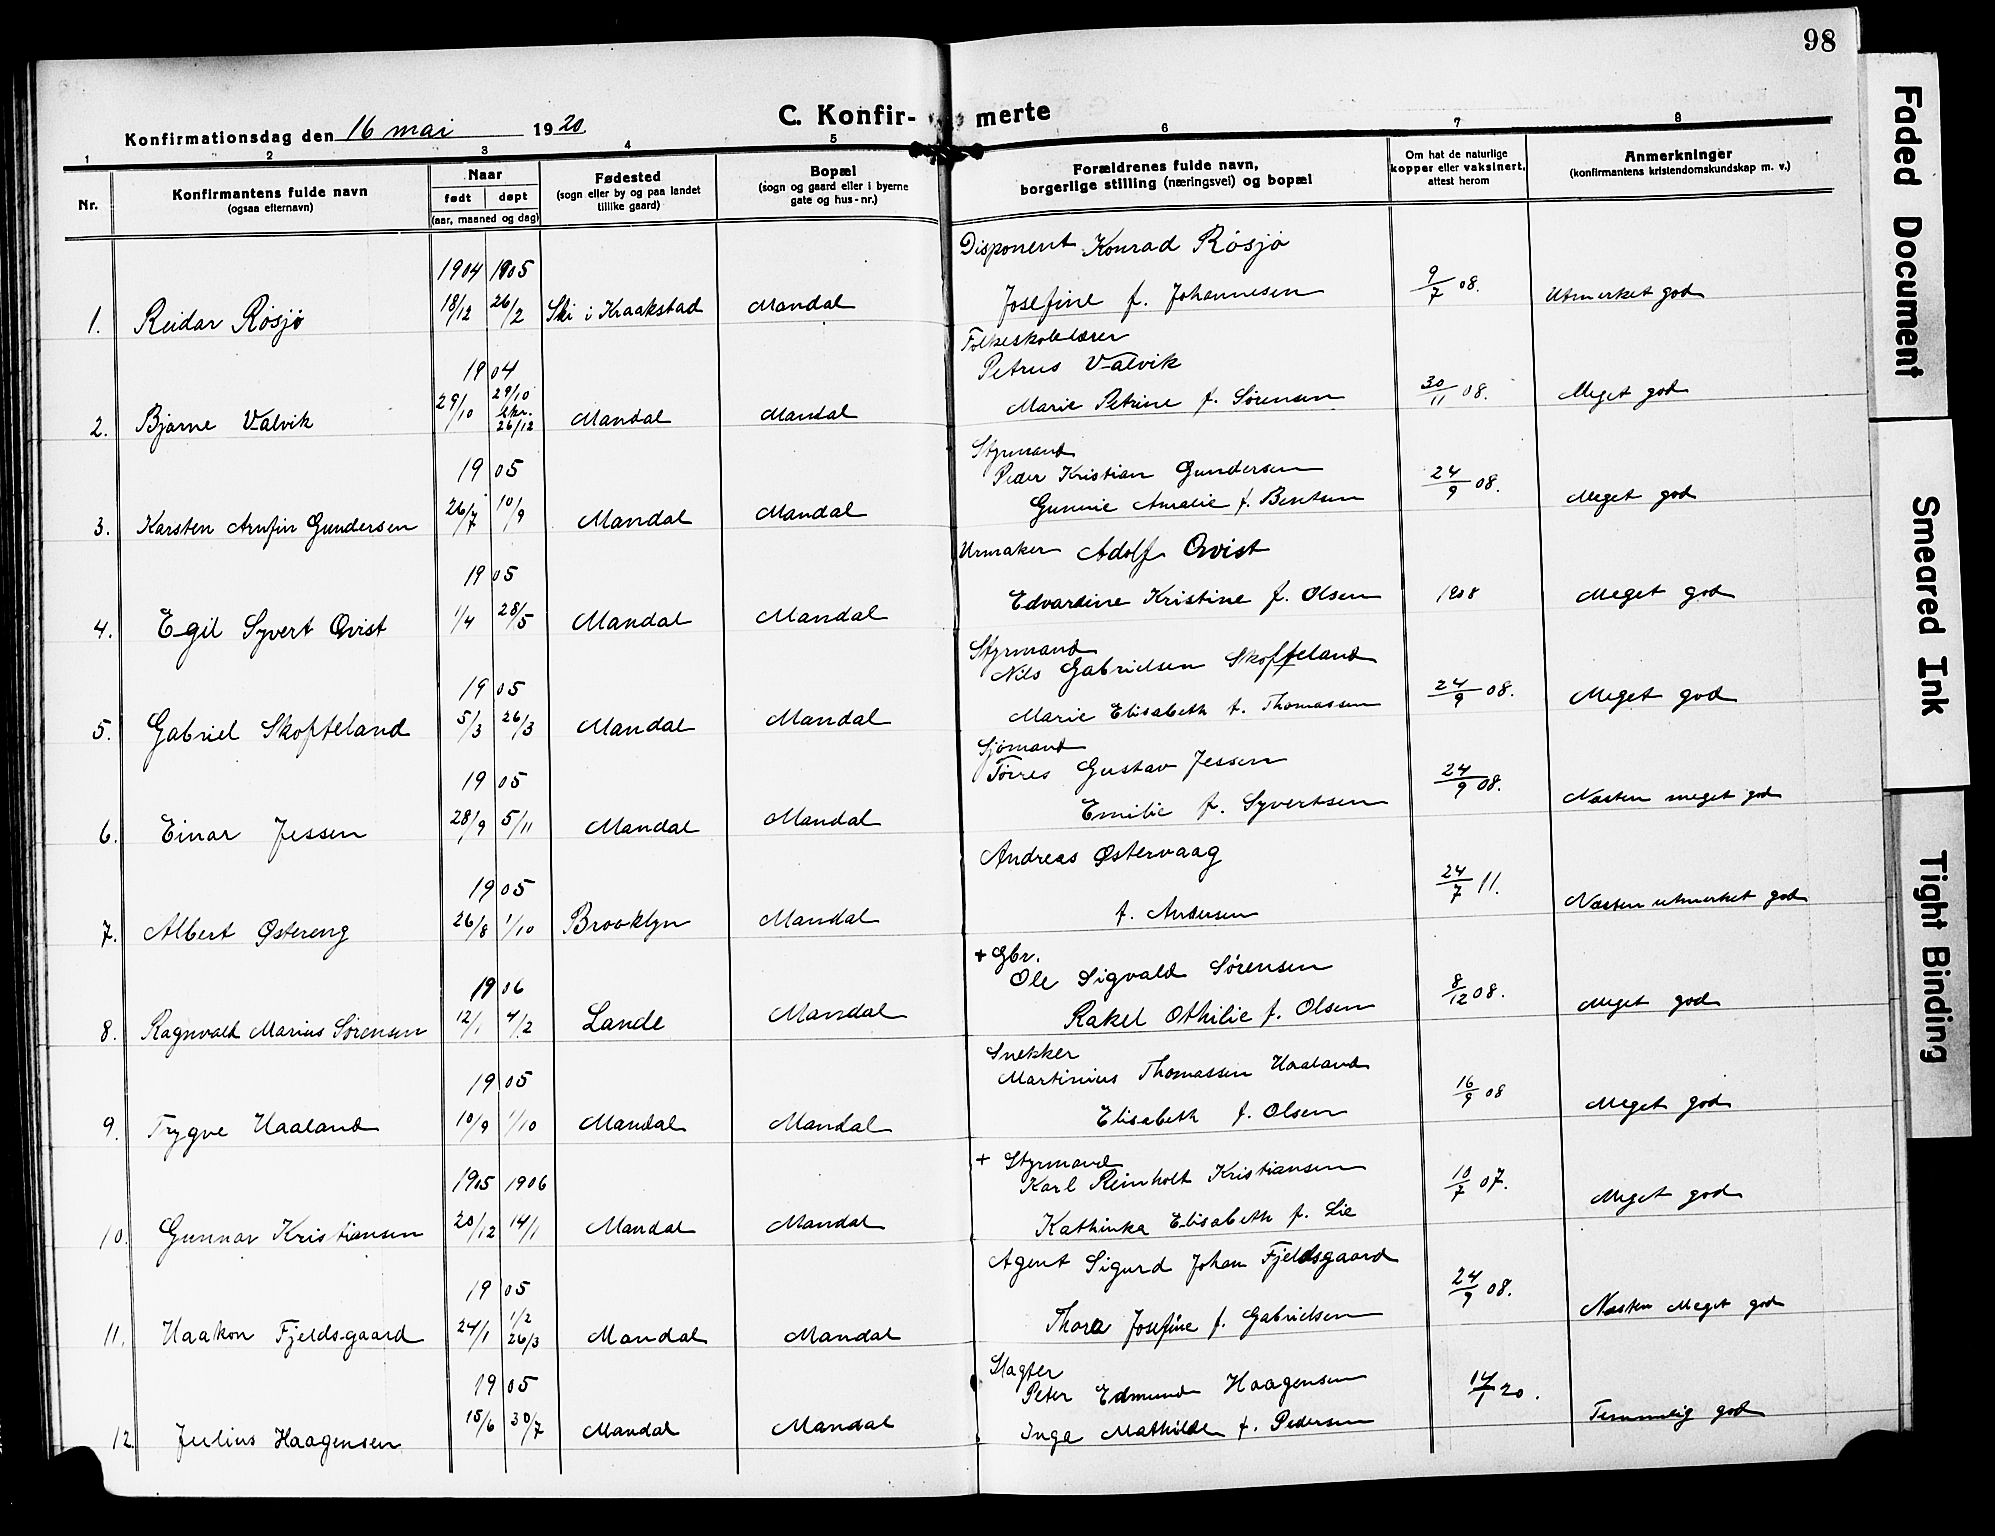 98
C. Konfir- merte
Konfirmationsdag den 16 mai 1920.
1 2 3 4 5 6 7 8
Nr.
Konfirmantens fulde navn
(ogsaa efternavn)
Naar
født døpt
(aar, maaned og dag)
Fødested
(sogn eller by og paa landet
tillike gaard)
Bopæl
(sogn og gaard eller i byerne
gate og hus-nr.)
Forældrenes fulde navn,
borgerlige stilling (næringsvei) og bopæl
Om hat de naturlige
kopper eller vaksinert,
attest herom
Anmerkninger
(konfirmantens kristendomskundskap m. v.)
1904 1905 Disponent Konrad Røsjø
1. Reidar Røsjø 18/12 26/2 Ski i Kraakstad Mandal Josefine f. Johannesen 9/7 08. Utmerket god
Folkeskolelærer
1904 Petrus Valvik
2. Bjarne Valvik 29/10 29/10 Skr. 26/12 Mandal Mandal Marie Petrine f. Sørensen 30/11 08. Meget god
Styrmand
1905 Peder Kristian Gundersen
3. Karsten Arnfin Gundersen 26/7 10/9 Mandal Mandal Gunnie Amalie f. Bentsen 24/9 08. Meget god
1905 Urmaker Adolf Qvist
4. Egil Syvert Qvist 1/4 28/5 Mandal Mandal Edvardine Kristine f. Olsen 1908 Meget god
Styrmand
1905 Nils Gabrielsen Skofteland
5. Gabriel Skofteland 5/3 26/3 Mandal Mandal Marie Elisabeth f. Thomassen 24/9 08. Meget god
Sjømand
1905 Tørres Gustav Jessen
6. Einar Jessen 28/9 5/11 Mandal Mandal Emilie f. Syvertsen 24/9 08. Næsten meget god
1905 Andreas Østervaag
7. Albert Østereng 26/8 1/10 Brooklyn Mandal f. Andersen 24/7 11. Næsten utmerket god
+ Gbr.
1906 Ole Sigvald Sørensen
8. Ragnvald Marius Sørensen 12/1 4/2 Lande Mandal Rakel Othilie f. Olsen 8/12 08. Meget god
Snekker
1905 Martinius Thomassen Haaland
9. Trygve Haaland 10/9 1/10 Mandal Mandal Elisabeth f. Olsen 16/9 08 Meget god
+ Styrmand
1905 1906 Karl Reinholt Kristiansen
10. Gunnar Kristiansen 20/12 14/1 Mandal Mandal Kathinka Elisabeth f. Lie 10/7 07. Meget god
1905 Agent Sigurd Johan Fjeldsgaard
11. Haakon Fjeldsgaard 24/1 1/2 26/3 Mandal Mandal Thora Josefine f. Gabrielsen 24/9 08. Næsten Meget god
Slagter
1905 Peter Edmund Haagensen
12 Julius Haagensen 15/6 30/7 Mandal Mandal Inga Mathilde f. Pedersen 14/1 20. Temmelig god
Faded Document
Smeared Ink
Tight Binding